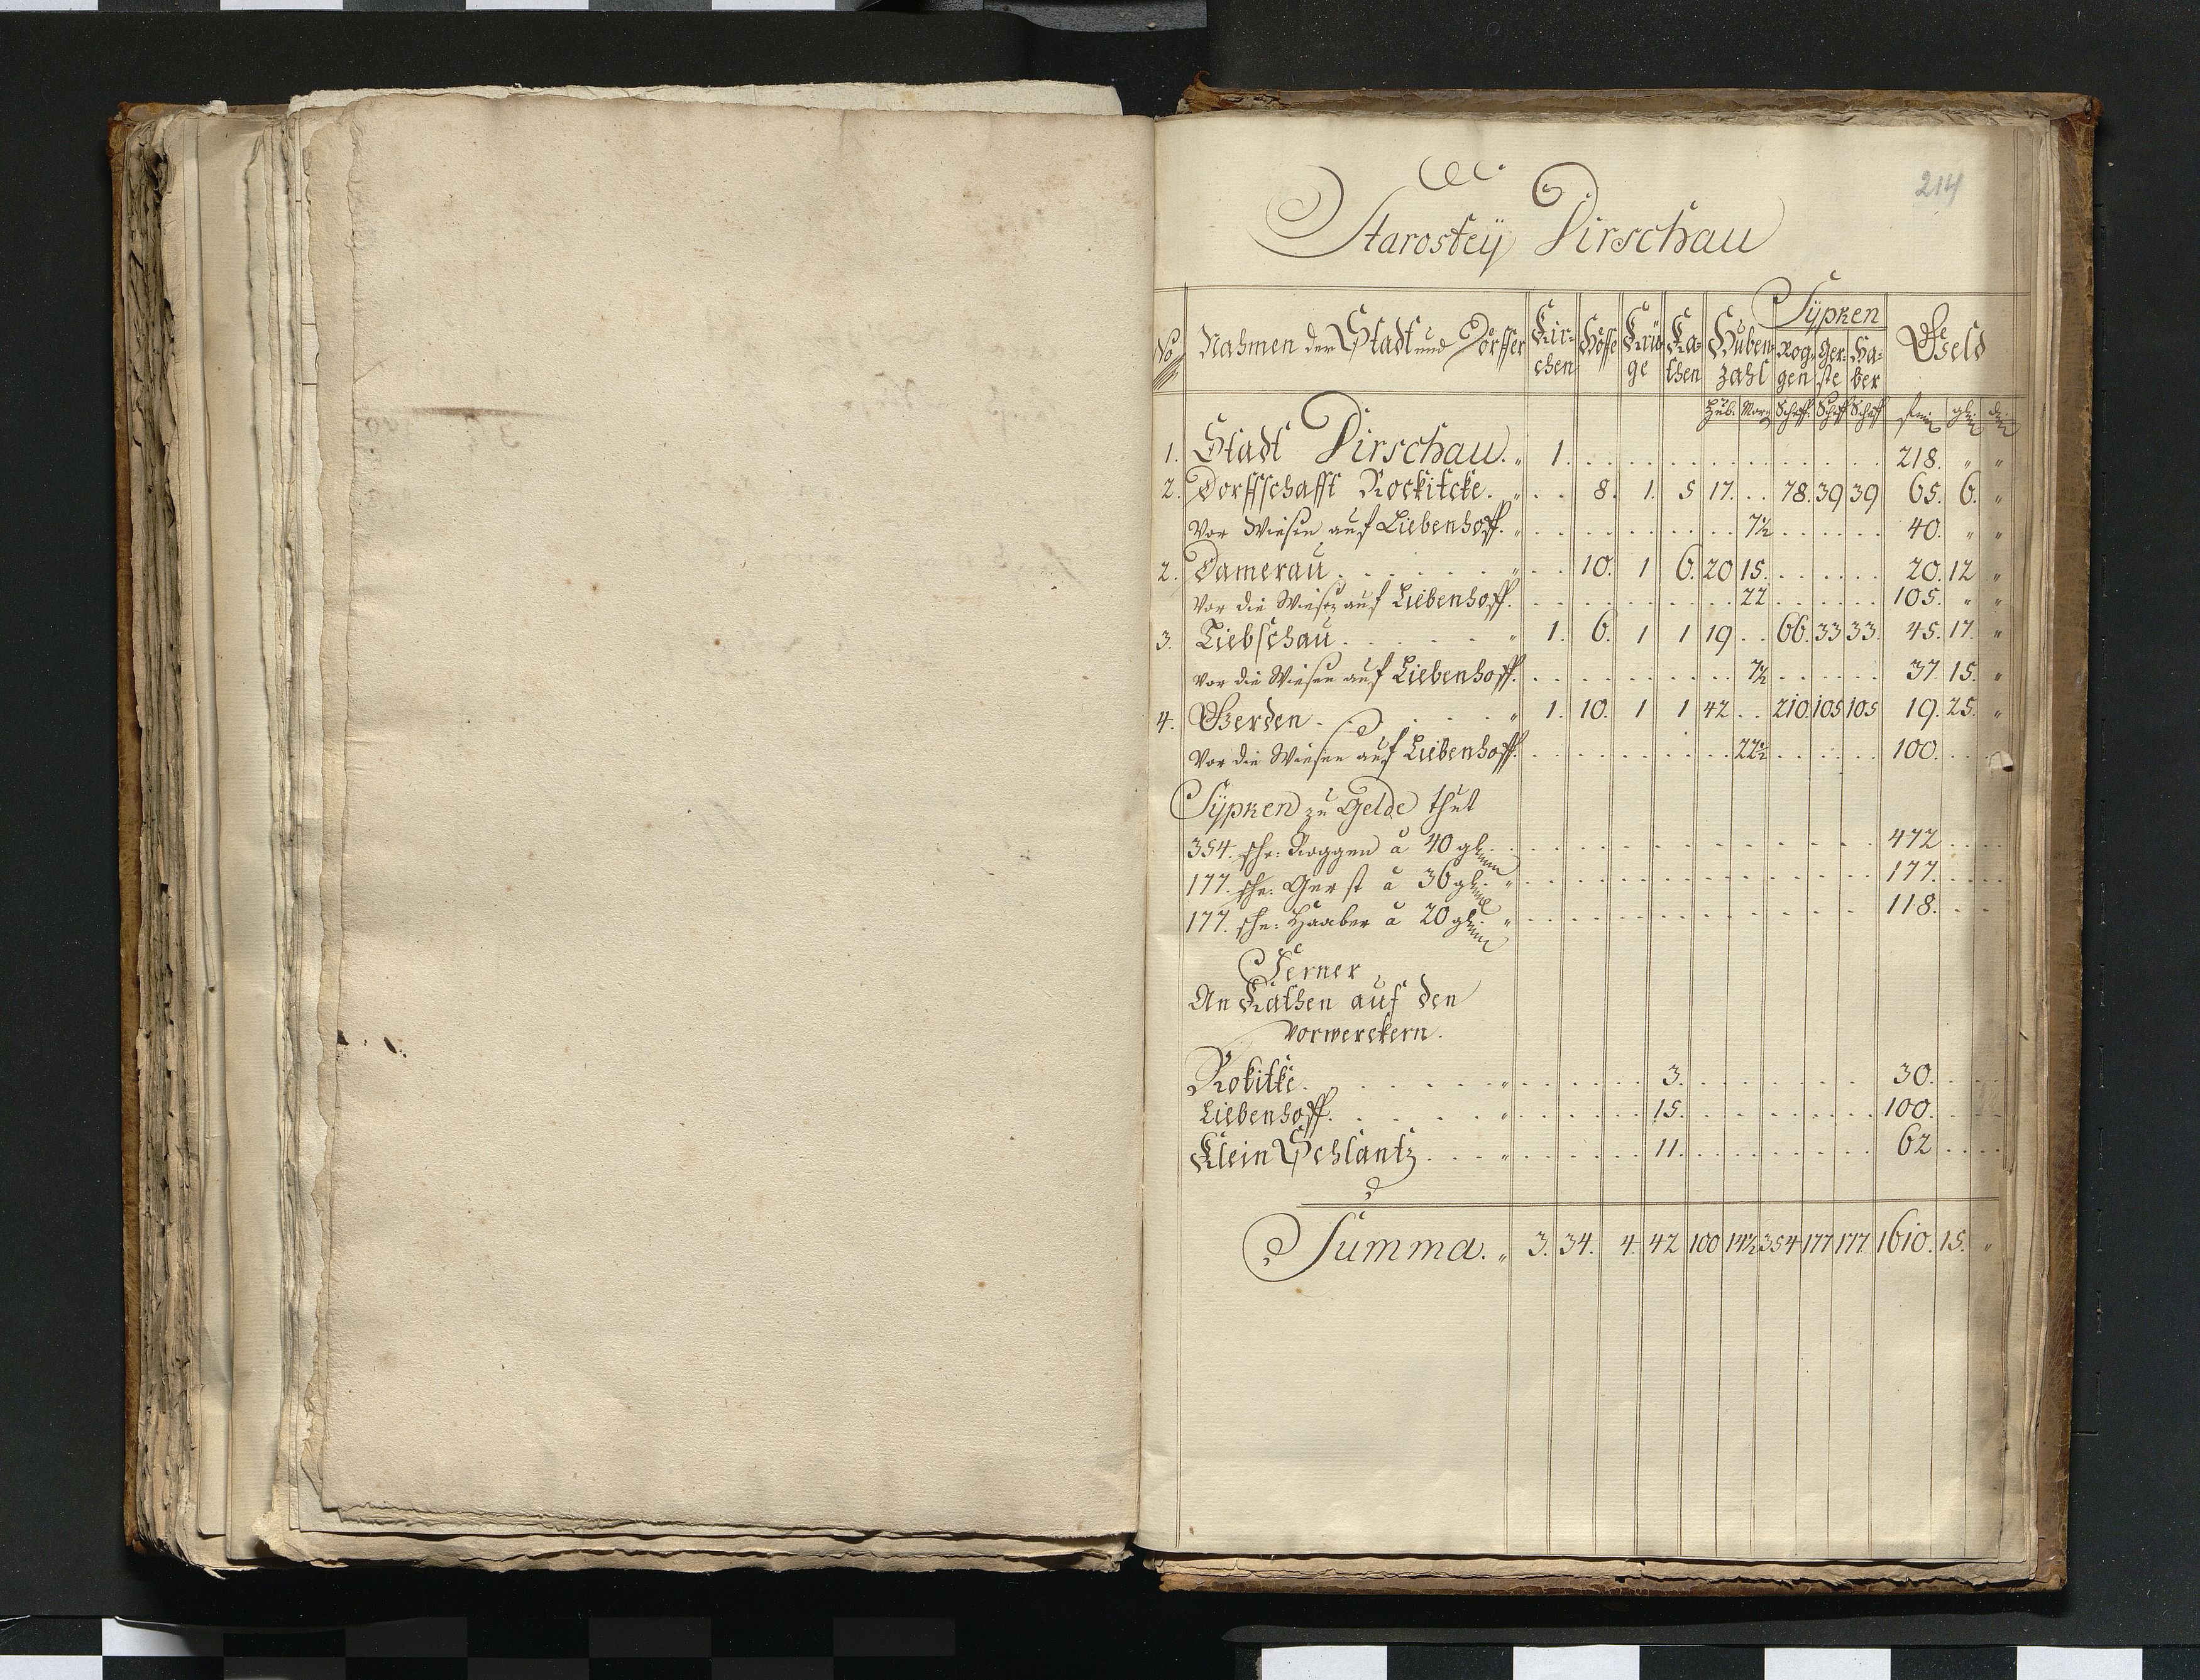 214
Starosteÿ Dirschau
No Nahmen der Stadt und Dörffer Kir-chen Höffe Krü-ge Ka-then Huben-zahl Sÿpken Rog-gen Ger-ste Ha-ber Geld
Hub. Morg Scheff. Scheff Scheff
1. Stadt Dirschau. " 1. 218. " "
2. Dorffschafft Rockitcke. " 8. 1. 5 17. 78. 39 39 65. 6. "
Vor Wiesen auf Liebenhoff. " 7½ 40. " "
2. Damerau " 10. 1 6. 20 15. 20. 12 "
Vor die Wiesen auf Liebenhoff. 22 105. " "
3. Liebschau " 1. 6. 1 1 19 66. 33 33. 45. 17. "
Vor die Wiesen auf Liebenhoff. 7½ 37. 15. "
4. Gerden " 1. 10. 1 1 42 210. 105 105 19. 25. "
Vor die Wiesen auf Liebenhoff. 22½ 100.
Sÿpken zu Gelde thut
354. sche: Roggen à 40 gl 472
177. sche: Gerst à 30 gl " 177.
177. sche: Haaber à 20 gl " 118.
Ferner
An Kathen auf den
Vorwerckern.
Rokitke. " 3. 30.
Liebenhoff. " 15. 100.
Klein Schlantz " 11. 62
Summa. " 3. 34. 4. 42 100 14½ 354 177 177 1610. 15. "